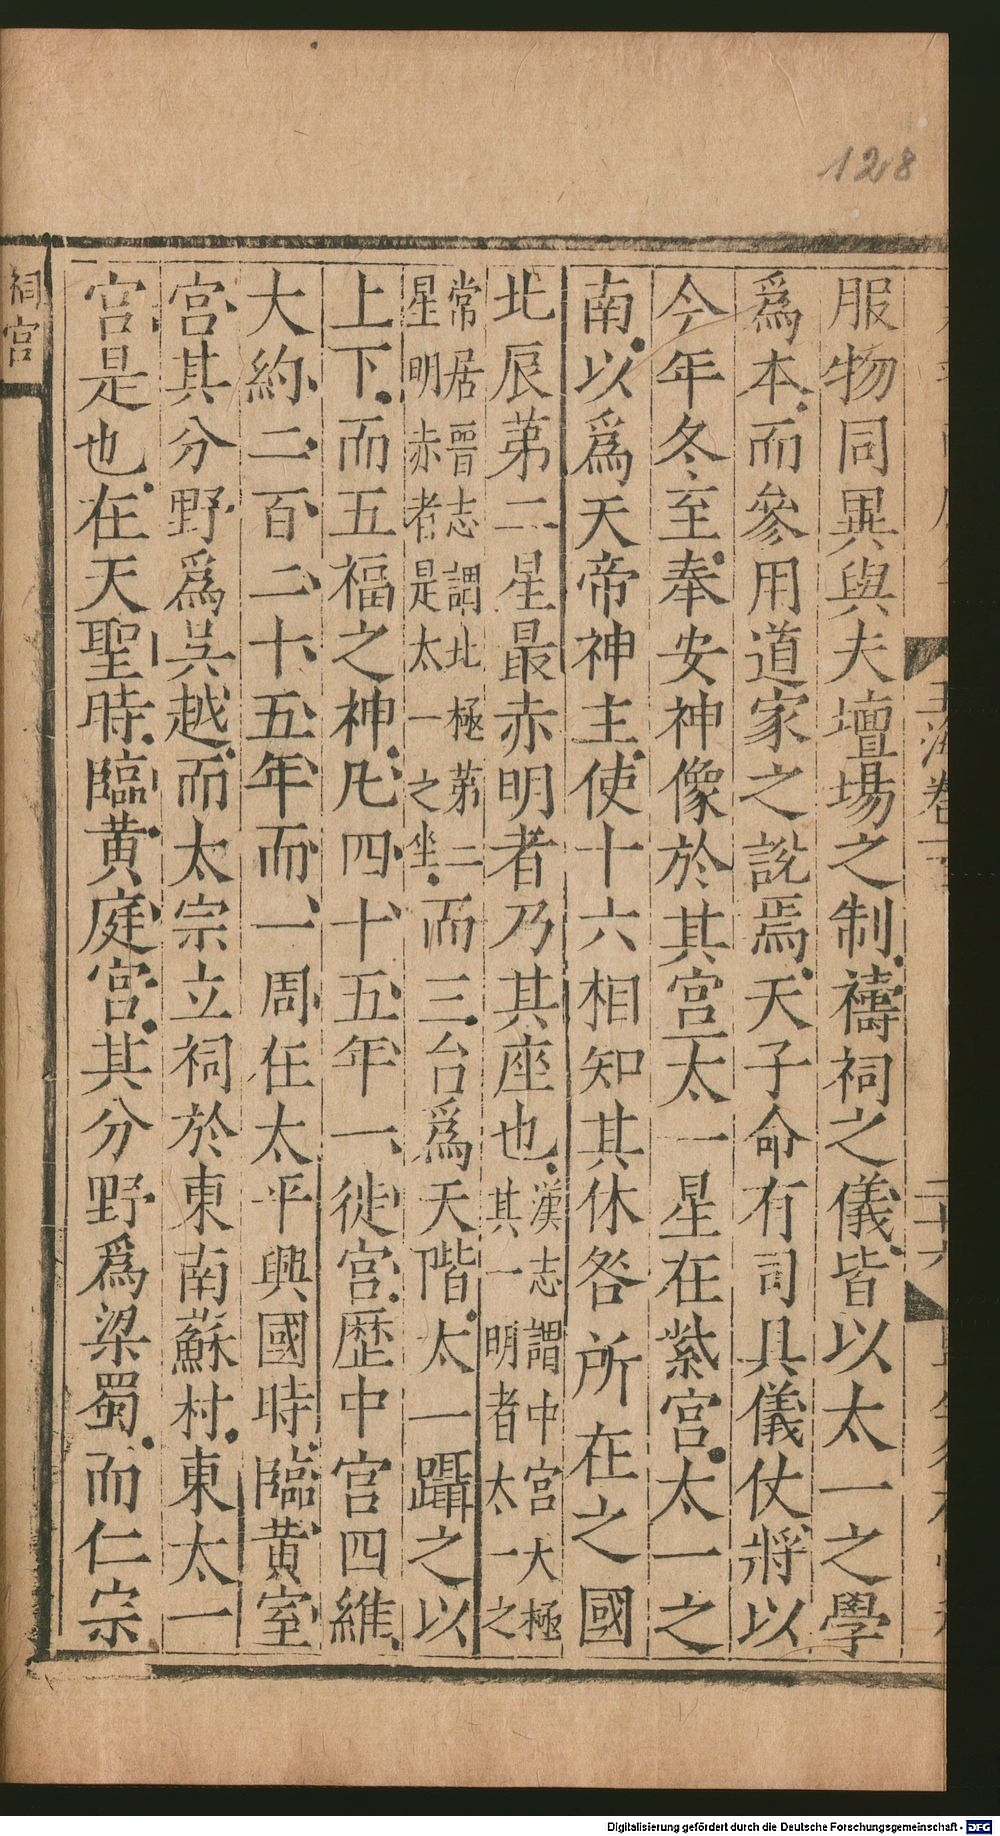 128
服物同異與夫壇場之制禱祠之儀皆以太一之學
爲本而參用道家之說焉天子命有司具儀仗將以
今年冬至奉安神像於其宮太一星在紫宮太一之
南以爲天帝神主使十六相知其休咎所在之國
北辰第二星最赤明者乃其座也漢志謂中宮大極
其一明者太一之
常居晋志謂北極第二
星明赤者是太一之坐而三台爲天階太一躡之以
上下而五福之神凡四十五年一徙宮歷中宮四維
大約二百二十五年而一周在太平興國時臨黃室
宮其分野爲吳越而太宗立祠於東南蘇村東太一
宮是也在天聖時臨黃庭宮其分野爲梁蜀而仁宗
祠宮
Digitalisierung gefördert durch die Deutsche Forschungsgemeinschaft - DFG